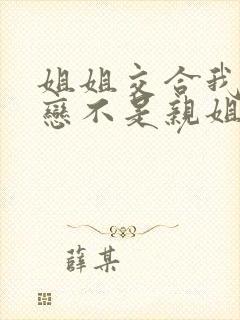 姐姐交合我
戀不是親姐
薛某